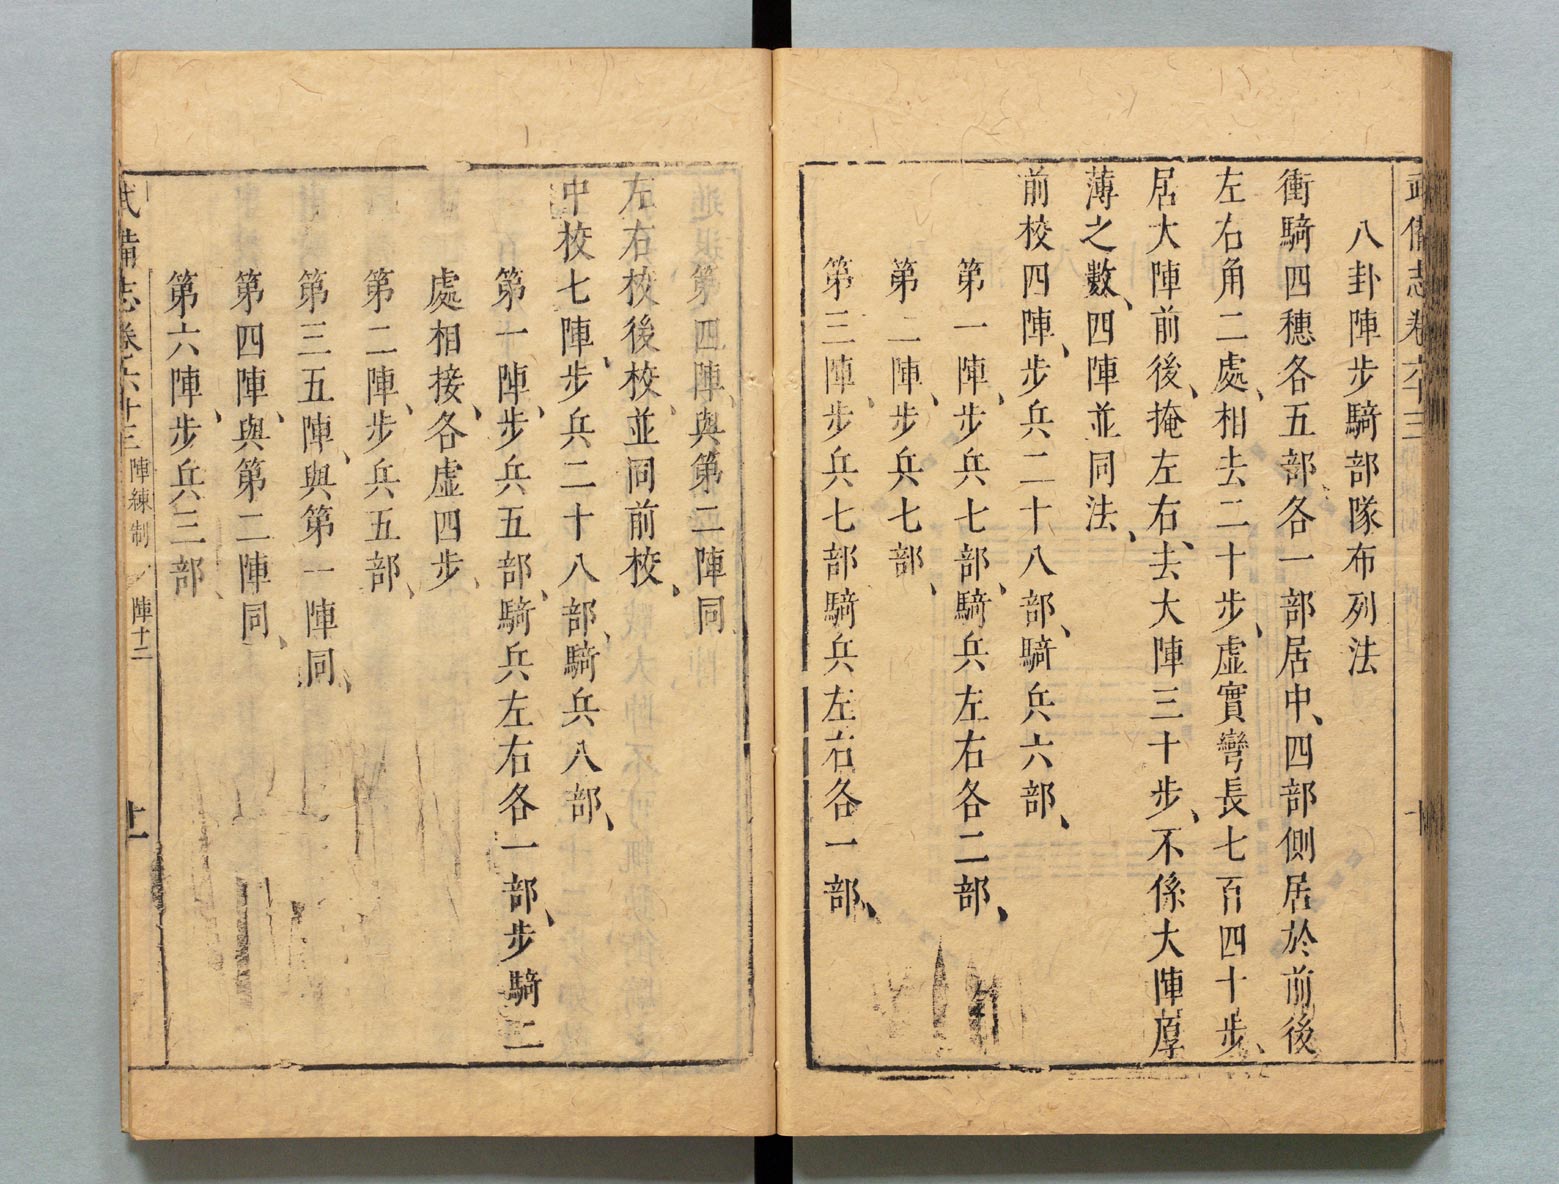 武備志卷六十三
八卦陣步騎部隊布列法
衝騎四穗各五部各一部居中、四部側居於前後
左右角二處、相去二十步、虛實彎長七百四十步、
居大陣前後、掩左右、去大陣三十步、不係大陣厚
薄之數、四陣並同法、
前校四陣、步兵二十八部、騎兵六部、
第一陣、步兵七部、騎兵左右各二部、
第二陣、步兵七部、
第三陣、步兵七部騎兵左右各一部、
第四陣、與第二陣同
左右校後校並同前校、
中校七陣、步兵二十八部、騎兵八部、
第一陣、步兵五部、騎兵左右各一部、步騎二
處相接、各虛四步、
第二陣、步兵五部、
第三五陣、與第一陣同、
第四陣、與第二陣同、
第六陣、步兵三部、
武備志卷六十三 陣練制 陣十二 十一